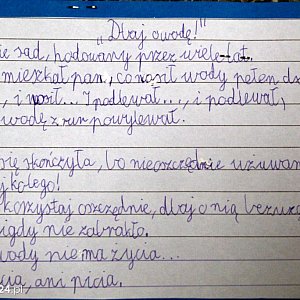 „Dbaj o wodę!"
ie sad, hodowany przez wiele lat.
mieszkał pan, co nosił wody pełen dz
, i nosił... I podlewał..., i podlewał,
wodę z rur powylewał.
się skończyła, bo nieoszczędnie używan
j kolego!
korzystaj oszczędnie, dbaj o nią bezus
igdy nie zabrakło.
wody nie ma życia...
cia, ani picia.
24.pl